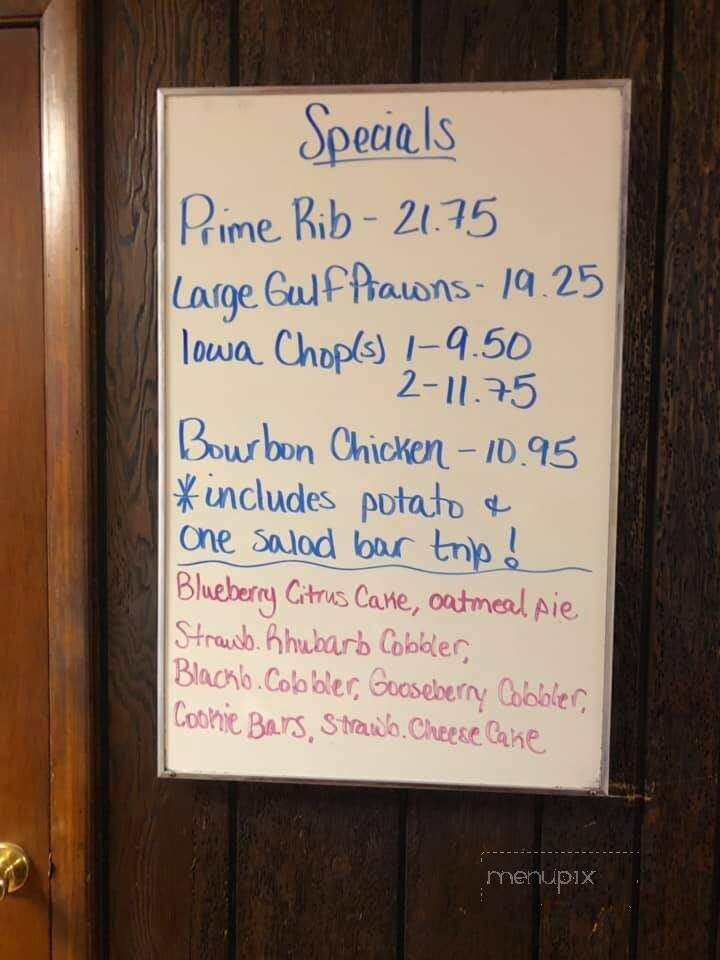 Specials
Prime Rib - 21.75
Large Gulf Prawns - 19.25
Iowa Chop(s) 1-9.50
2-11.75
Bourbon Chicken - 10.95
*includes potato &
one salad bar trip!
Blueberry Citrus Cake, oatmeal pie
Strawb. Rhubarb Cobbler,
Blackb. Cobbler, Gooseberry Cobbler,
Cookie Bars, Strawb. Cheese Cake
menupix